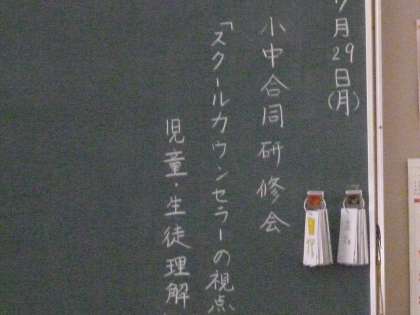 7月29日(月)
小中合同研修会
「スクールカウンセラーの視点
児童・生徒理解